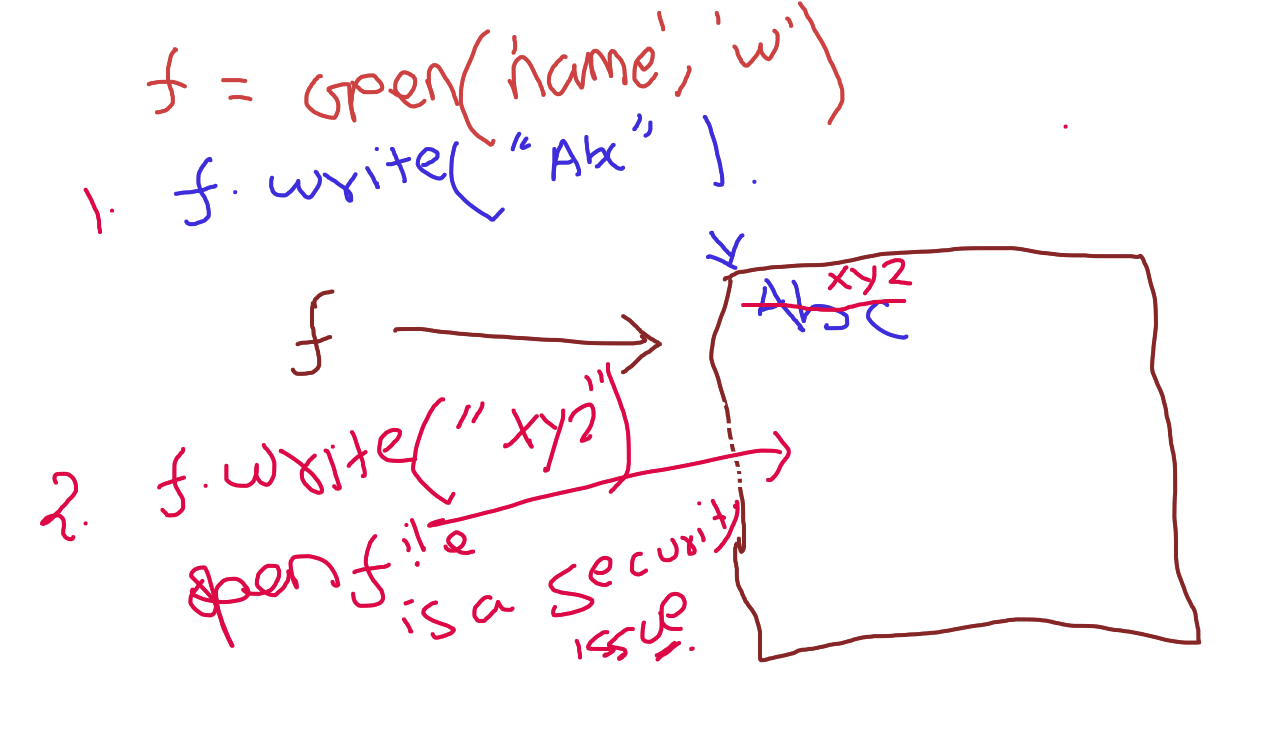 f = open('name', 'w')
1. f.write("Abc").
xyz
Abc
f
2. f.write("xyz")
open file
is a security
issue.